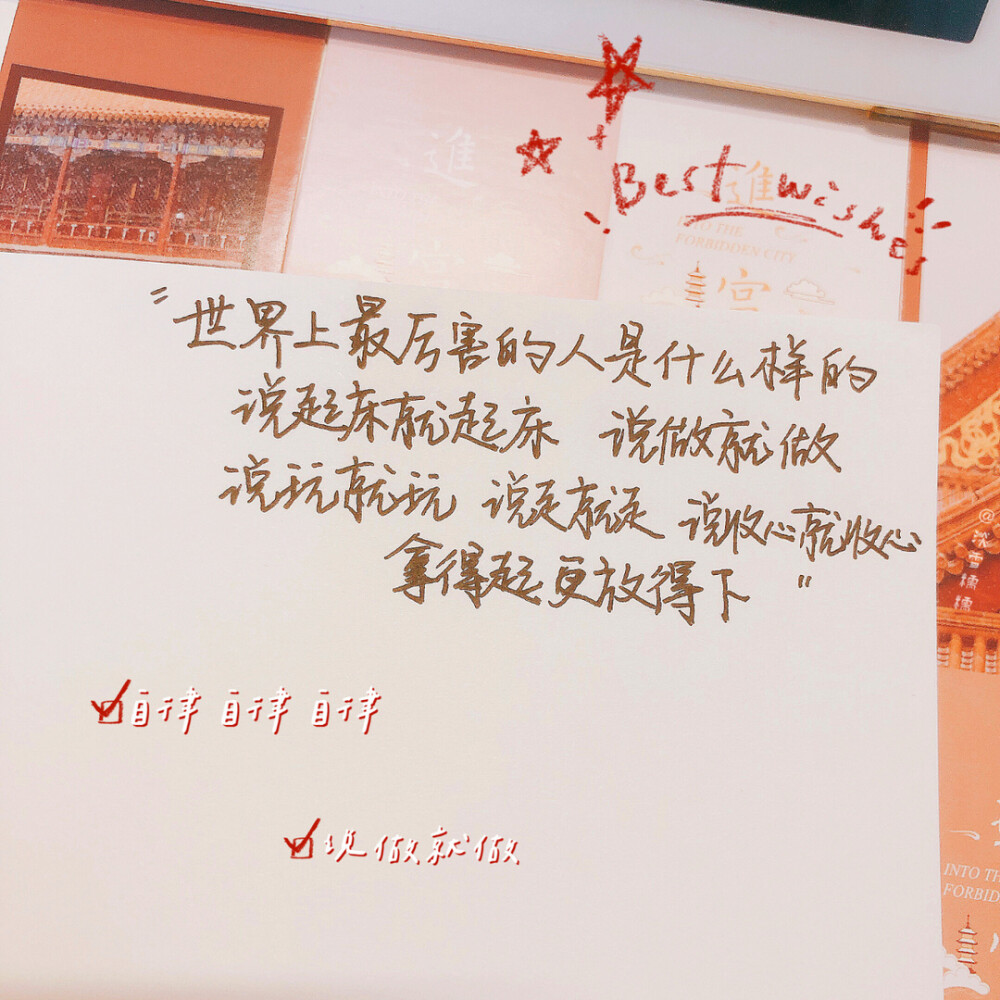 進
宫
Best wishes
進
INTO THE
FORBIDDEN CITY
宫
"世界上最厉害的人是什么样的
说起床就起床 说做就做
说玩就玩 说走就走 说收心就收心
拿得起更放得下"
@淡雪橘橘
自律 自律 自律
说做就做
INTO TH
FORBID